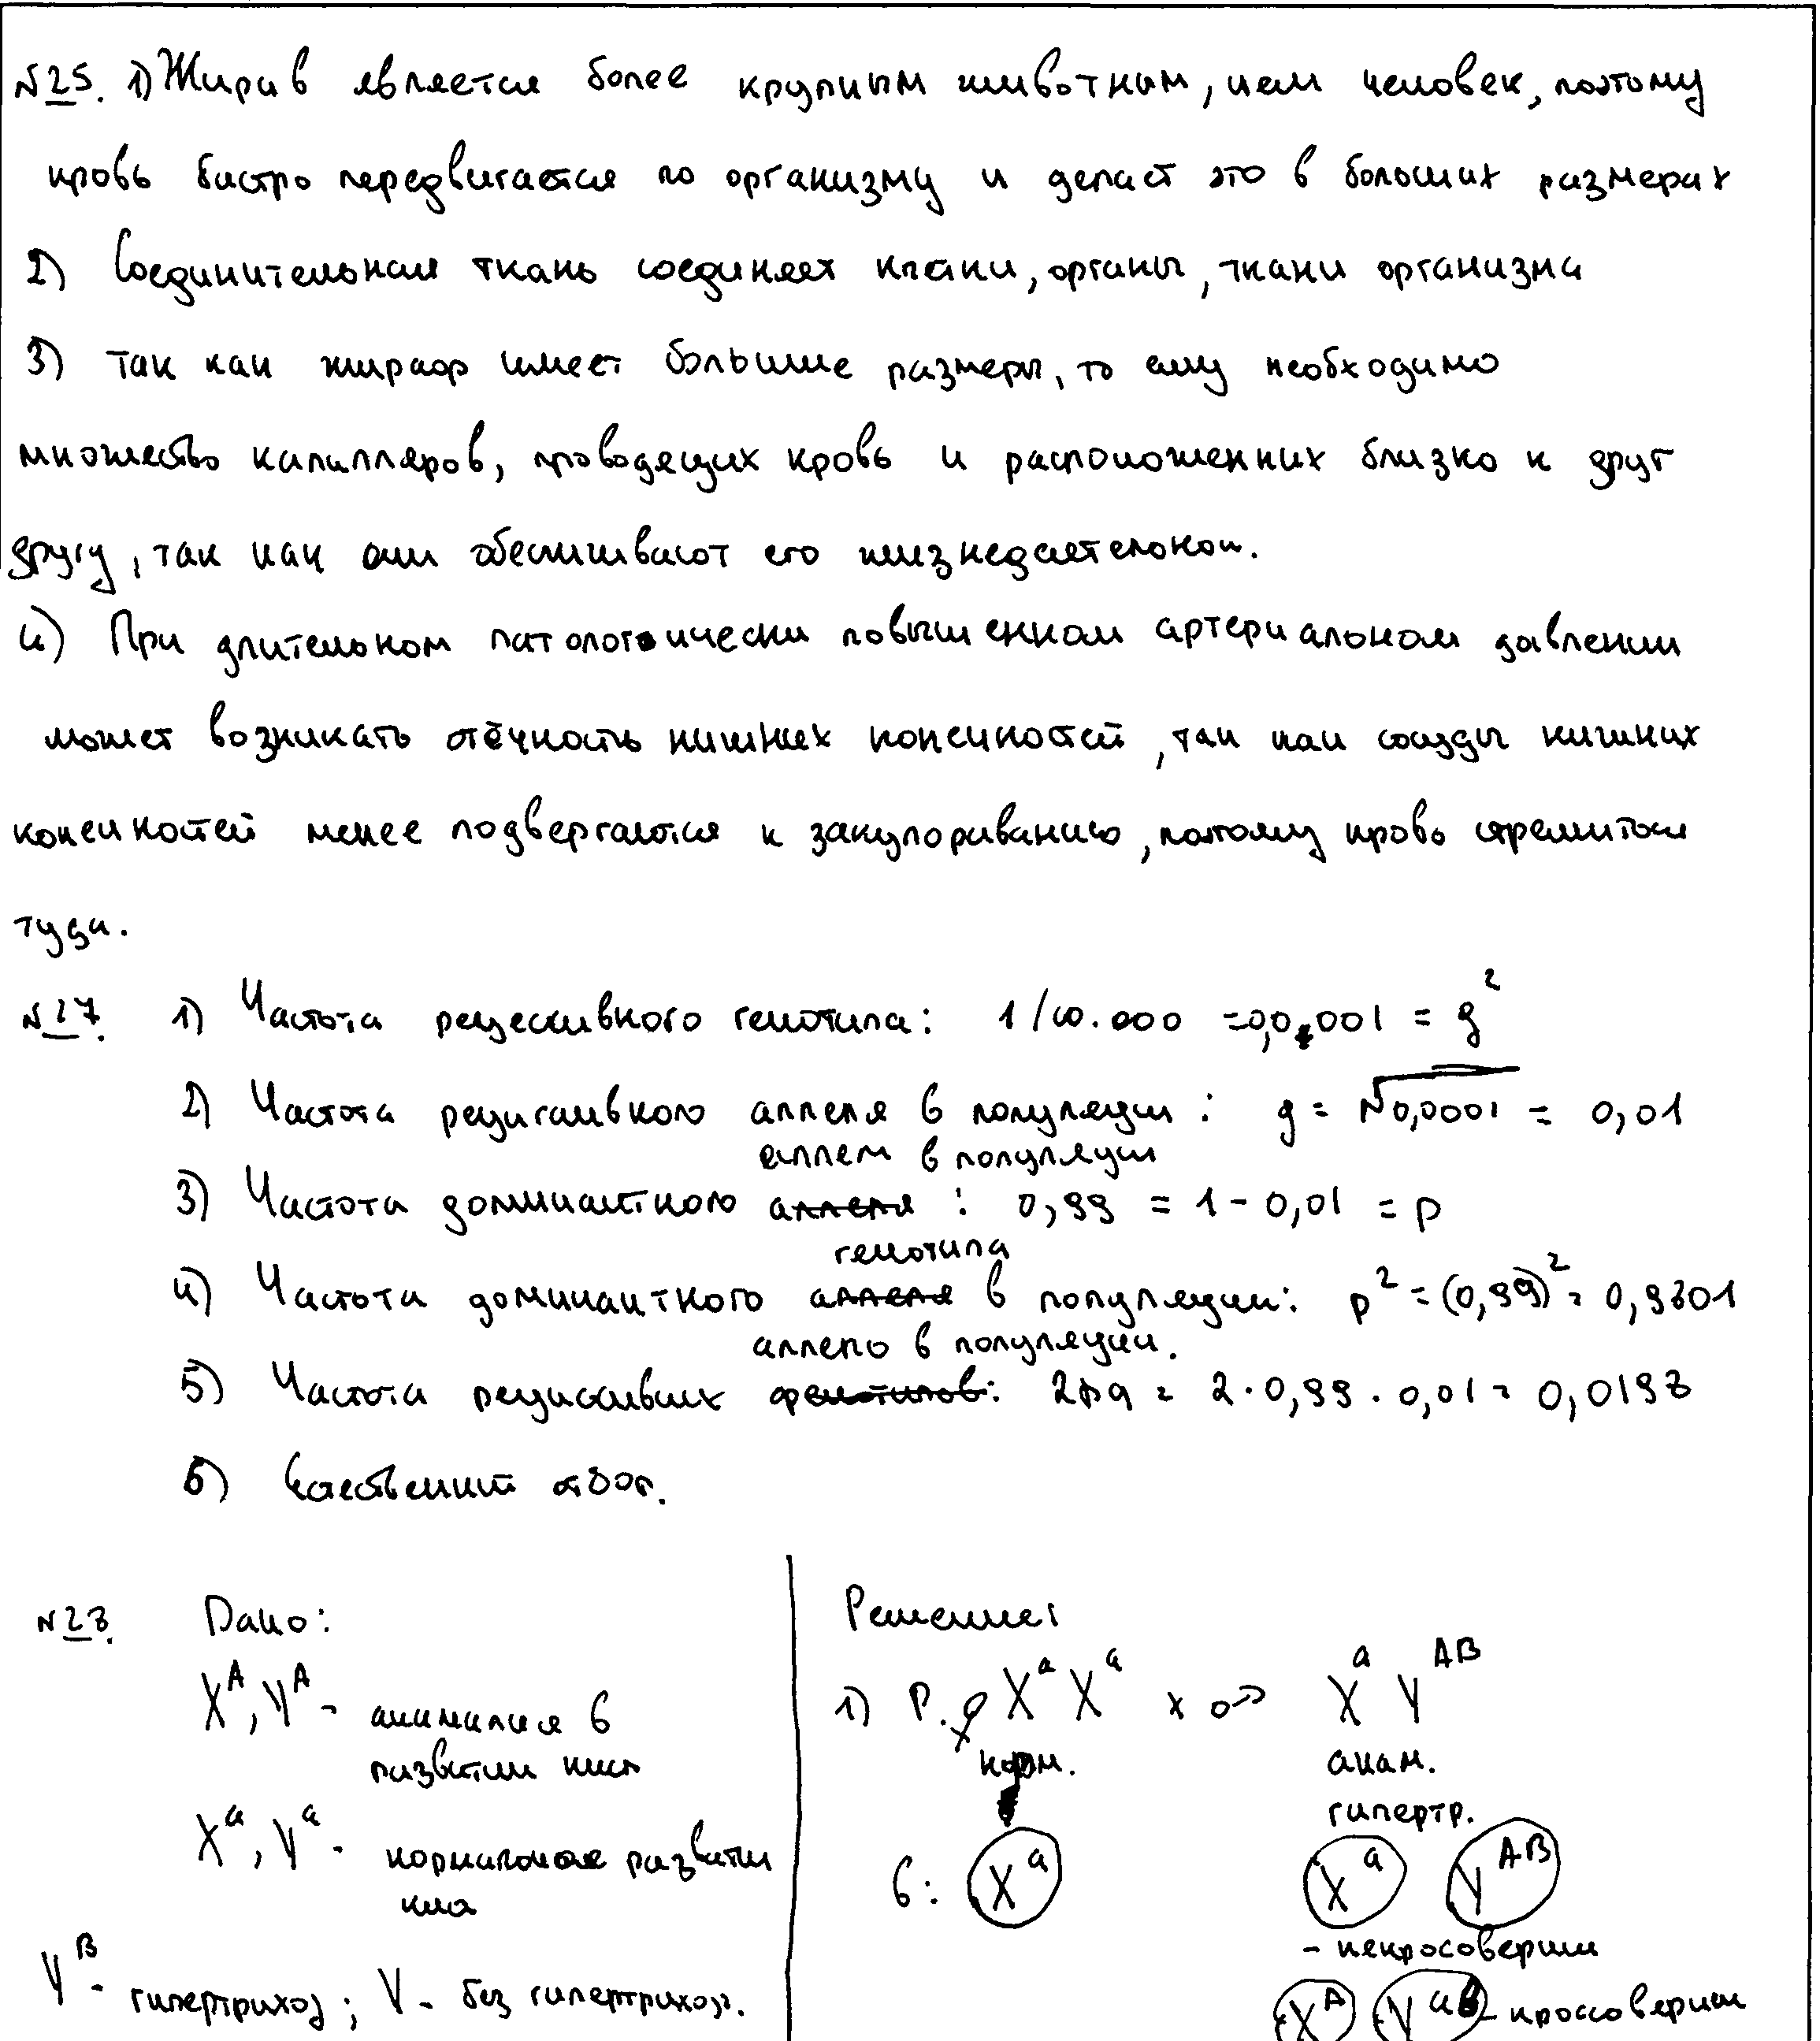 №25. 1) Жираф является более крупным животным, чем человек, поэтому
кровь быстро передвигается по организму и делает это в больших размерах
2) Соединительная ткань соединяет клетки, органы, ткани организма
3) Так как жираф имеет большие размеры, то ему необходимо
множество капилляров, проводящих кровь и расположенных близко к друг
другу, так как они обеспечивают его жизнедеятельност.
4) При длительном патологически повышенном артериальном давлении
может возникать отёчность нижних конечностей, так как сосуды нижних
конечностей менее подвергаются к закупориванию, поэтому кровь стремиться
туда.
№27. 1) Частота рецессивного генотипа: 1/10.000 = 0,0001 = q²
2) Частота рецессивного аллеля в популяции: q = √0,0001 = 0,01
аллеля в популяции
3) Частота доминантного аллеля : 0,99 = 1 - 0,01 = p
генотипа
4) Частота доминантного аллеля в популяции: p² = (0,99)² = 0,9801
аллелю в популяции.
5) Частота рецессивных фенотипов: 2pq = 2 · 0,99 · 0,01 = 0,0198
6) Естественный отбор.
№28. Дано:
X^A, Y^A - аномалия в
развитии кисл
X^a, Y^a - нормальное развитие
Y^B - гипертрихоз; Y - без гипертрихоз.
Решение:
1) P. ♀ X^a X^a x ♂ X^a Y^AB
норм. аном.
гипертр.
G: X^a X^a Y^AB
- некросоверные
X^A Y^aB - кроссоверные